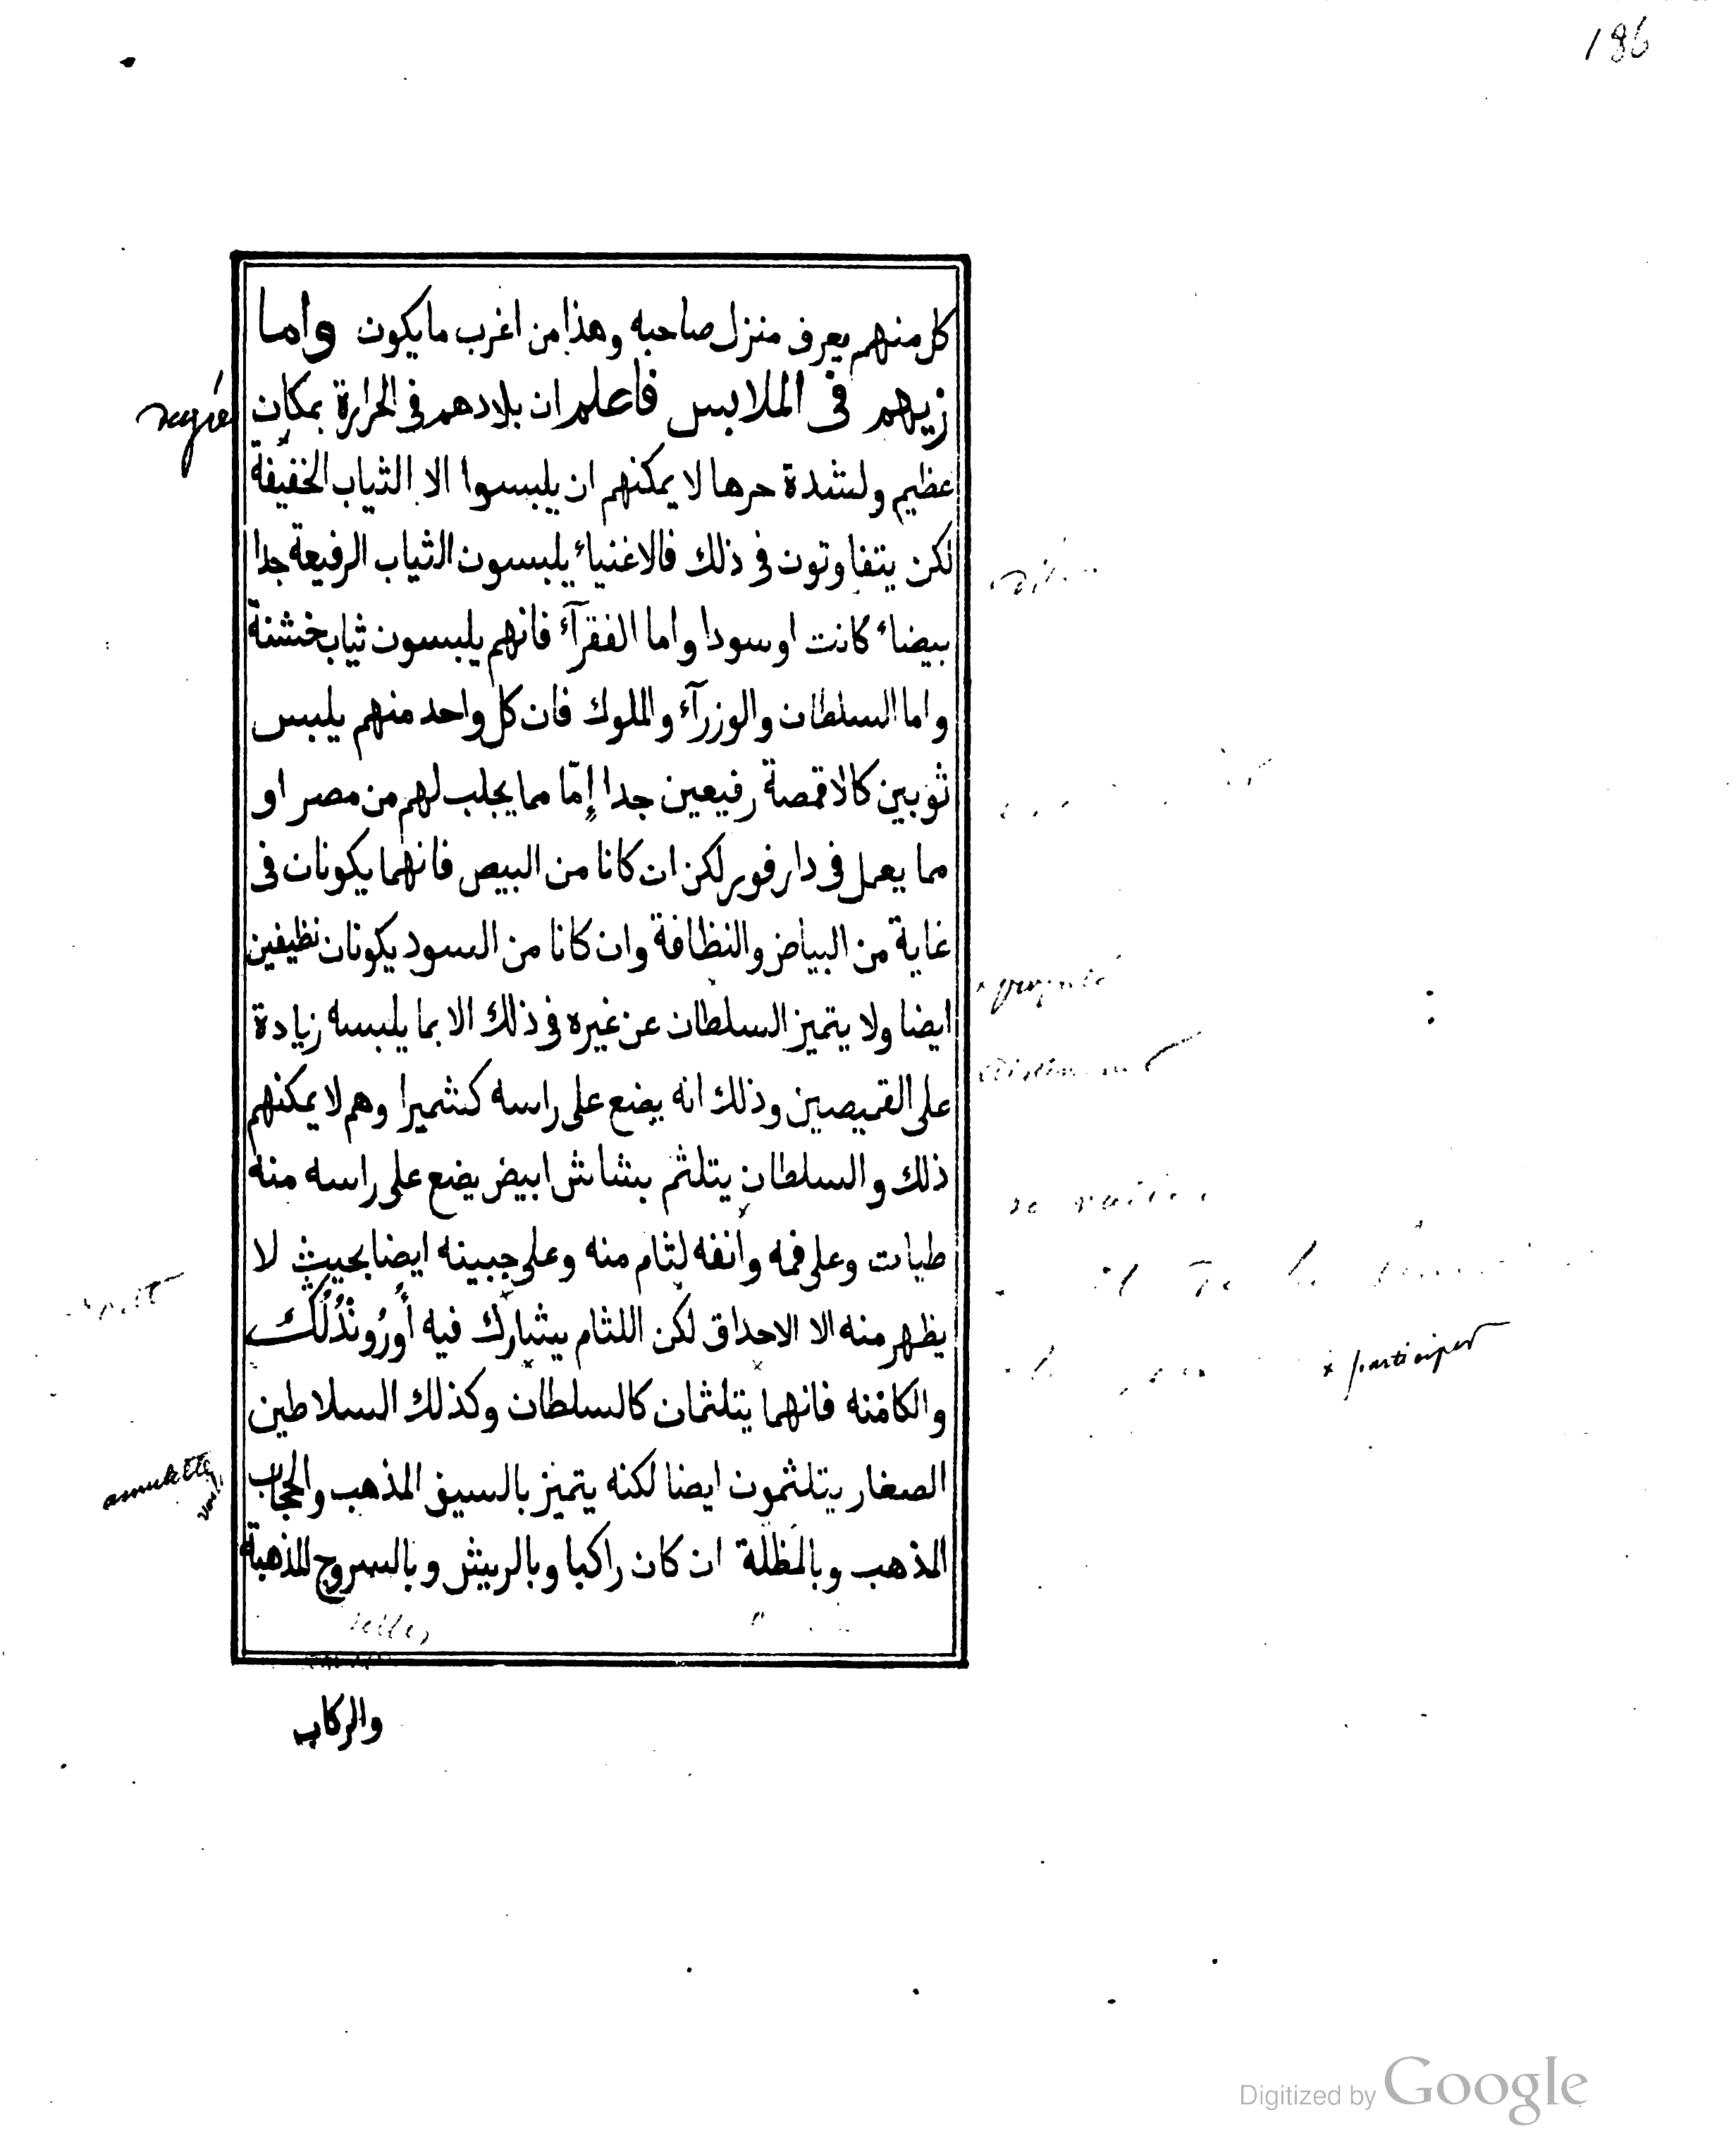 186
كل منهم يعرف منزل صاحبه وهذا من اغرب ما يكون واما
زيهم فى الملابس فاعلم ان بلادهم فى الحرارة بمكان
عظيم ولشدة حرها لا يمكنهم ان يلبسوا الا الثياب الخفيفة
لكن يتفاوتون فى ذلك فالاغنياء يلبسون الثياب الرفيعة جدا
بيضاء كانت او سودا واما الفقرآء فانهم يلبسون ثياب خشنة
واما السلطان والوزرآء والملوك فان كل واحد منهم يلبس
ثوبين كالاقمصة رفيعين جدا إمّا مما يجلب لهم من مصر او
مما يعمل فى دار فور لكن ان كانا من البيض فانهما يكونان فى
غاية من البياض والنظافة وان كانا من السود يكونان نظيفين
ايضا ولا يتميز السلطان عن غيره فى ذلك الا بما يلبسه زيادة
على القميصين وذلك انه يضع على راسه كشميرا وهم لا يمكنهم
ذلك والسلطان يتلثم بشاش ابيض يضع على راسه منه
طيات وعلى فمه وانفه لثام منه وعلى جبينه ايضا بحيث لا
يظهر منه الا الاحداق لكن اللثام يشارك فيه أُورُونْدُلُنْكَ
والكامْنه فانهما يتلثمان كالسلطان وكذلك السلاطين
الصغار يتلثمون ايضا لكنه يتميز بالسيف المذهب والحجاب
المذهب وبالمظلة ان كان راكبا وبالريش وبالسروج المذهبة
والركاب
× participer
amulette
Digitized by Google